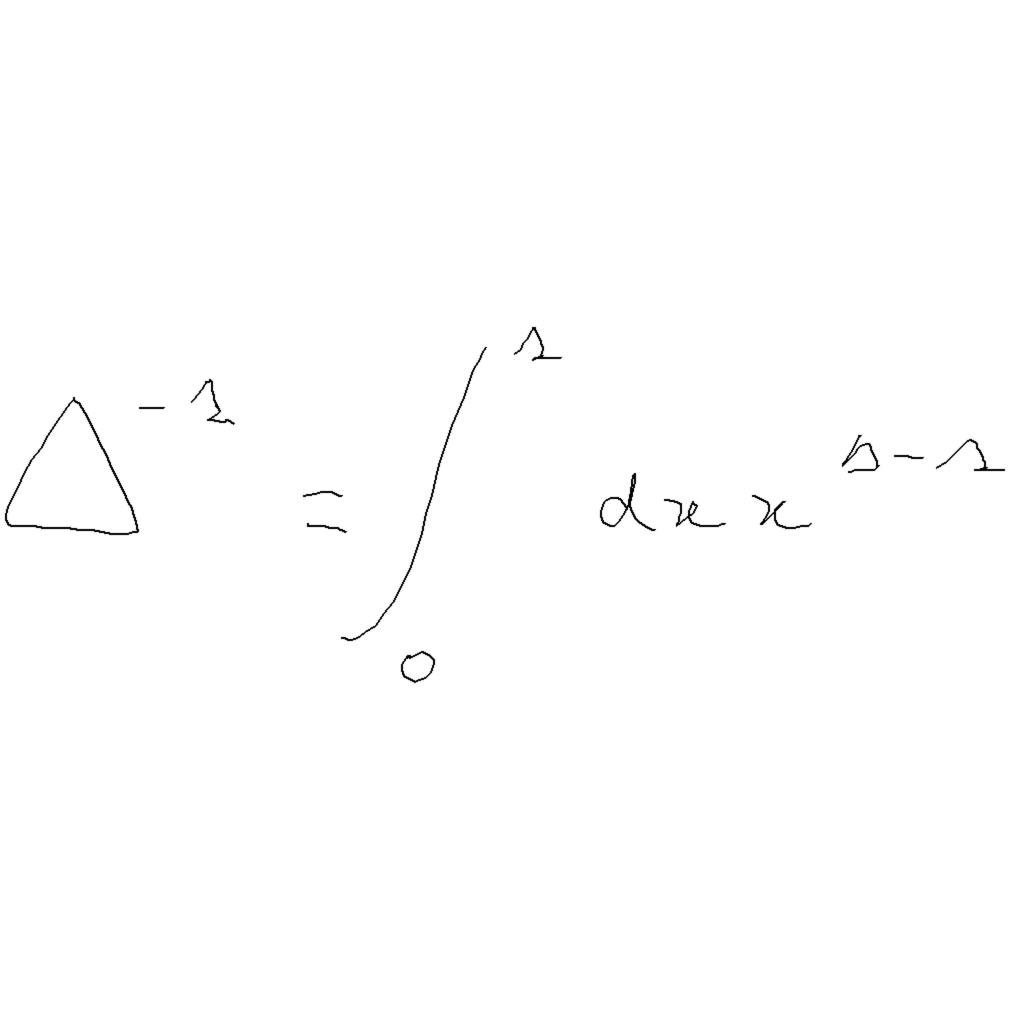 \Delta^{-1} = \int_{0}^{1} dx x^{\Delta-1}